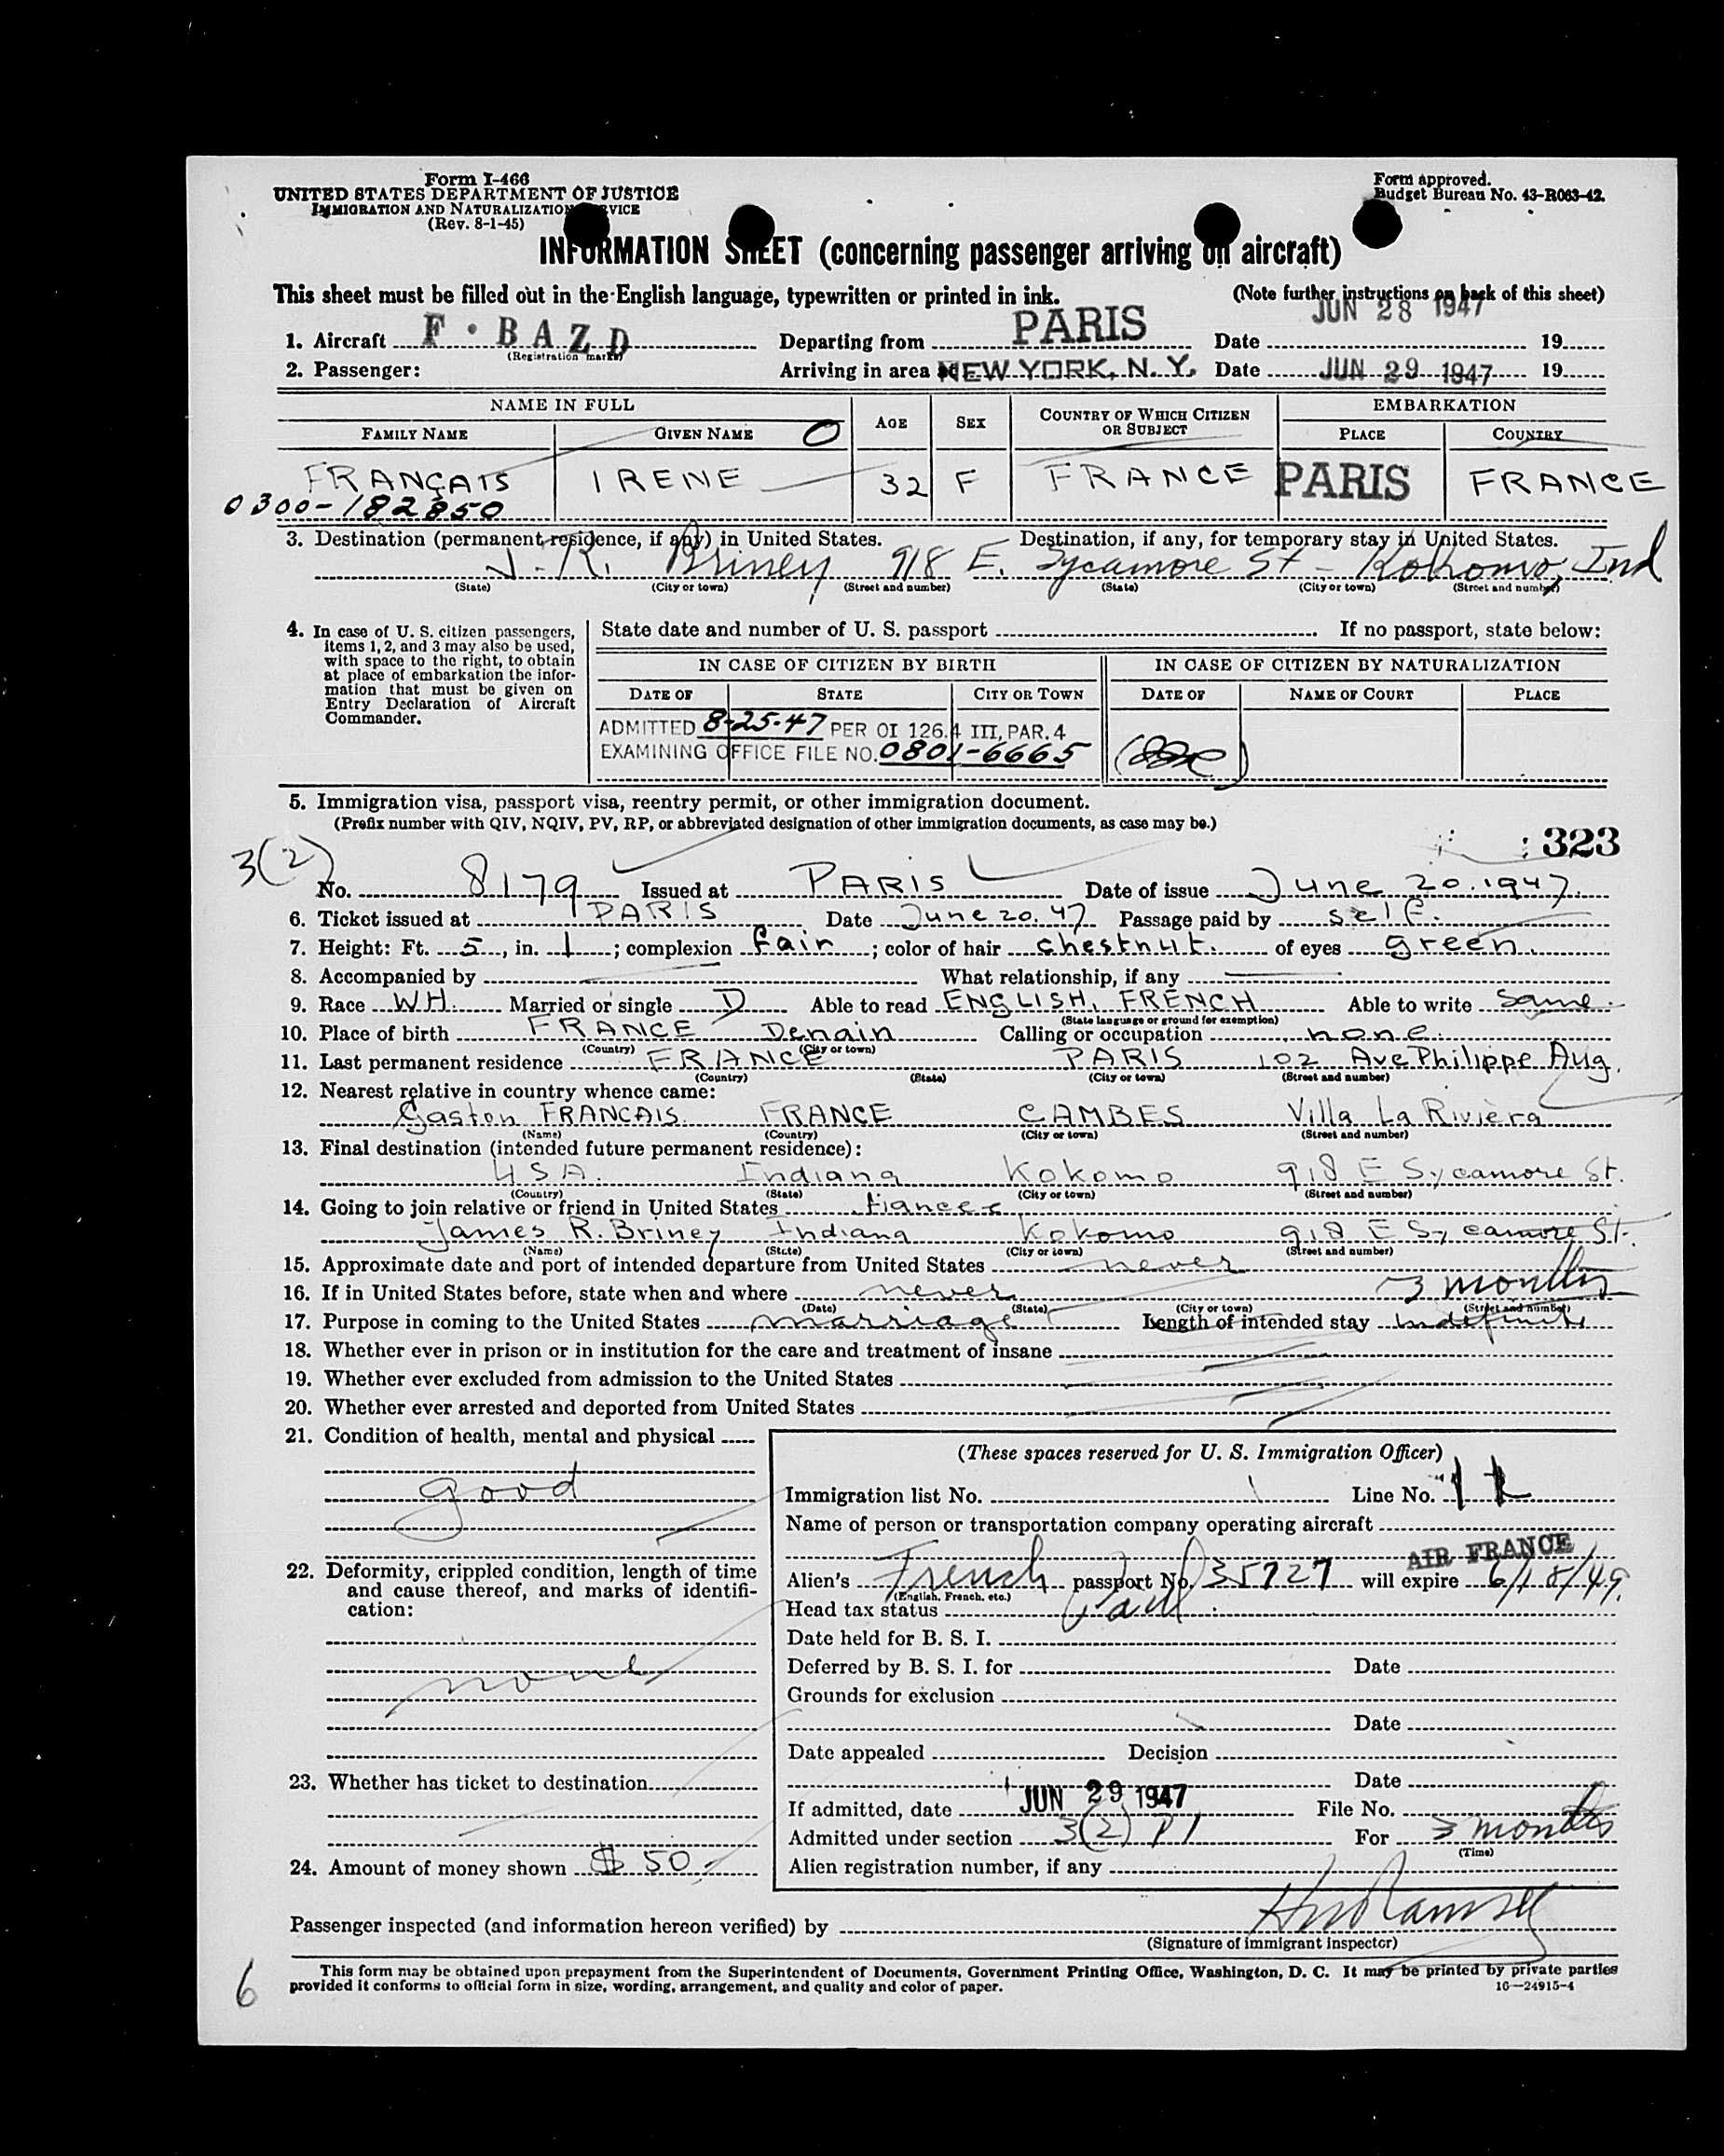 Form I-466
UNITED STATES DEPARTMENT OF JUSTICE
IMMIGRATION AND NATURALIZATION SERVICE
(Rev. 8-1-45)
Form approved.
Budget Bureau No. 43-R063-42.
INFORMATION SHEET (concerning passenger arriving on aircraft)
This sheet must be filled out in the English language, typewritten or printed in ink.
(Note further instructions on back of this sheet)
JUN 28 1947
1. Aircraft F·BAZD Departing from PARIS Date 19
(Registration marks)
2. Passenger: Arriving in area NEW YORK, N. Y. Date JUN 29 1947 19
NAME IN FULL AGE SEX COUNTRY OF WHICH CITIZEN OR SUBJECT EMBARKATION
FAMILY NAME GIVEN NAME O PLACE COUNTRY
FRANÇAIS IRENE 32 F FRANCE PARIS FRANCE
0300-182850
3. Destination (permanent residence, if any) in United States. Destination, if any, for temporary stay in United States.
J. R. Briney 918 E. Sycamore St - Kokomo, Ind
(State) (City or town) (Street and number) (State) (City or town) (Street and number)
4. In case of U. S. citizen passengers,
items 1, 2, and 3 may also be used,
with space to the right, to obtain
at place of embarkation the infor-
mation that must be given on
Entry Declaration of Aircraft
Commander.
State date and number of U. S. passport If no passport, state below:
IN CASE OF CITIZEN BY BIRTH IN CASE OF CITIZEN BY NATURALIZATION
DATE OF STATE CITY OR TOWN DATE OF NAME OF COURT PLACE
ADMITTED 8-25-47 PER OI 126.4 III, PAR. 4
EXAMINING OFFICE FILE NO. 0801-6665
5. Immigration visa, passport visa, reentry permit, or other immigration document.
(Prefix number with QIV, NQIV, PV, RP, or abbreviated designation of other immigration documents, as case may be.)
323
3(2)
No. 8179 Issued at PARIS Date of issue June 20. 1947.
6. Ticket issued at PARIS Date June 20. 47 Passage paid by self.
7. Height: Ft. 5, in. 1; complexion fair; color of hair chestnut. of eyes green.
8. Accompanied by What relationship, if any
9. Race WH. Married or single D Able to read ENGLISH, FRENCH Able to write Same.
(State language or ground for exemption)
10. Place of birth FRANCE Denain Calling or occupation none.
(Country) (City or town)
11. Last permanent residence FRANCE PARIS 102 Ave Philippe Aug.
(Country) (State) (City or town) (Street and number)
12. Nearest relative in country whence came:
Gaston FRANCAIS. FRANCE CAMBES Villa La Rivièra
(Name) (Country) (City or town) (Street and number)
13. Final destination (intended future permanent residence):
USA. Indiana Kokomo 918 E Sycamore St.
(Country) (State) (City or town) (Street and number)
14. Going to join relative or friend in United States fiancee
James R. Briney Indiana Kokomo 918 E Sycamore St.
(Name) (State) (City or town) (Street and number)
15. Approximate date and port of intended departure from United States never
16. If in United States before, state when and where never 3 months
(Date) (State) (City or town) (Street and number)
17. Purpose in coming to the United States marriage Length of intended stay indefinite
18. Whether ever in prison or in institution for the care and treatment of insane
19. Whether ever excluded from admission to the United States
20. Whether ever arrested and deported from United States
21. Condition of health, mental and physical
good
22. Deformity, crippled condition, length of time
and cause thereof, and marks of identifi-
cation:
none
23. Whether has ticket to destination
24. Amount of money shown $ 50.-
(These spaces reserved for U. S. Immigration Officer)
Immigration list No. Line No.
Name of person or transportation company operating aircraft
AIR FRANCE
Alien's French passport No. 35727 will expire 6/18/49.
(English, French, etc.)
Head tax status Paid
Date held for B. S. I.
Deferred by B. S. I. for Date
Grounds for exclusion
Date
Date appealed Decision
Date
If admitted, date JUN 29 1947 File No.
Admitted under section 3(2) P1 For 3 months
(Time)
Alien registration number, if any
Passenger inspected (and information hereon verified) by
(Signature of immigrant inspector)
6
This form may be obtained upon prepayment from the Superintendent of Documents, Government Printing Office, Washington, D. C. It may be printed by private parties
provided it conforms to official form in size, wording, arrangement, and quality and color of paper.
16—24915-4